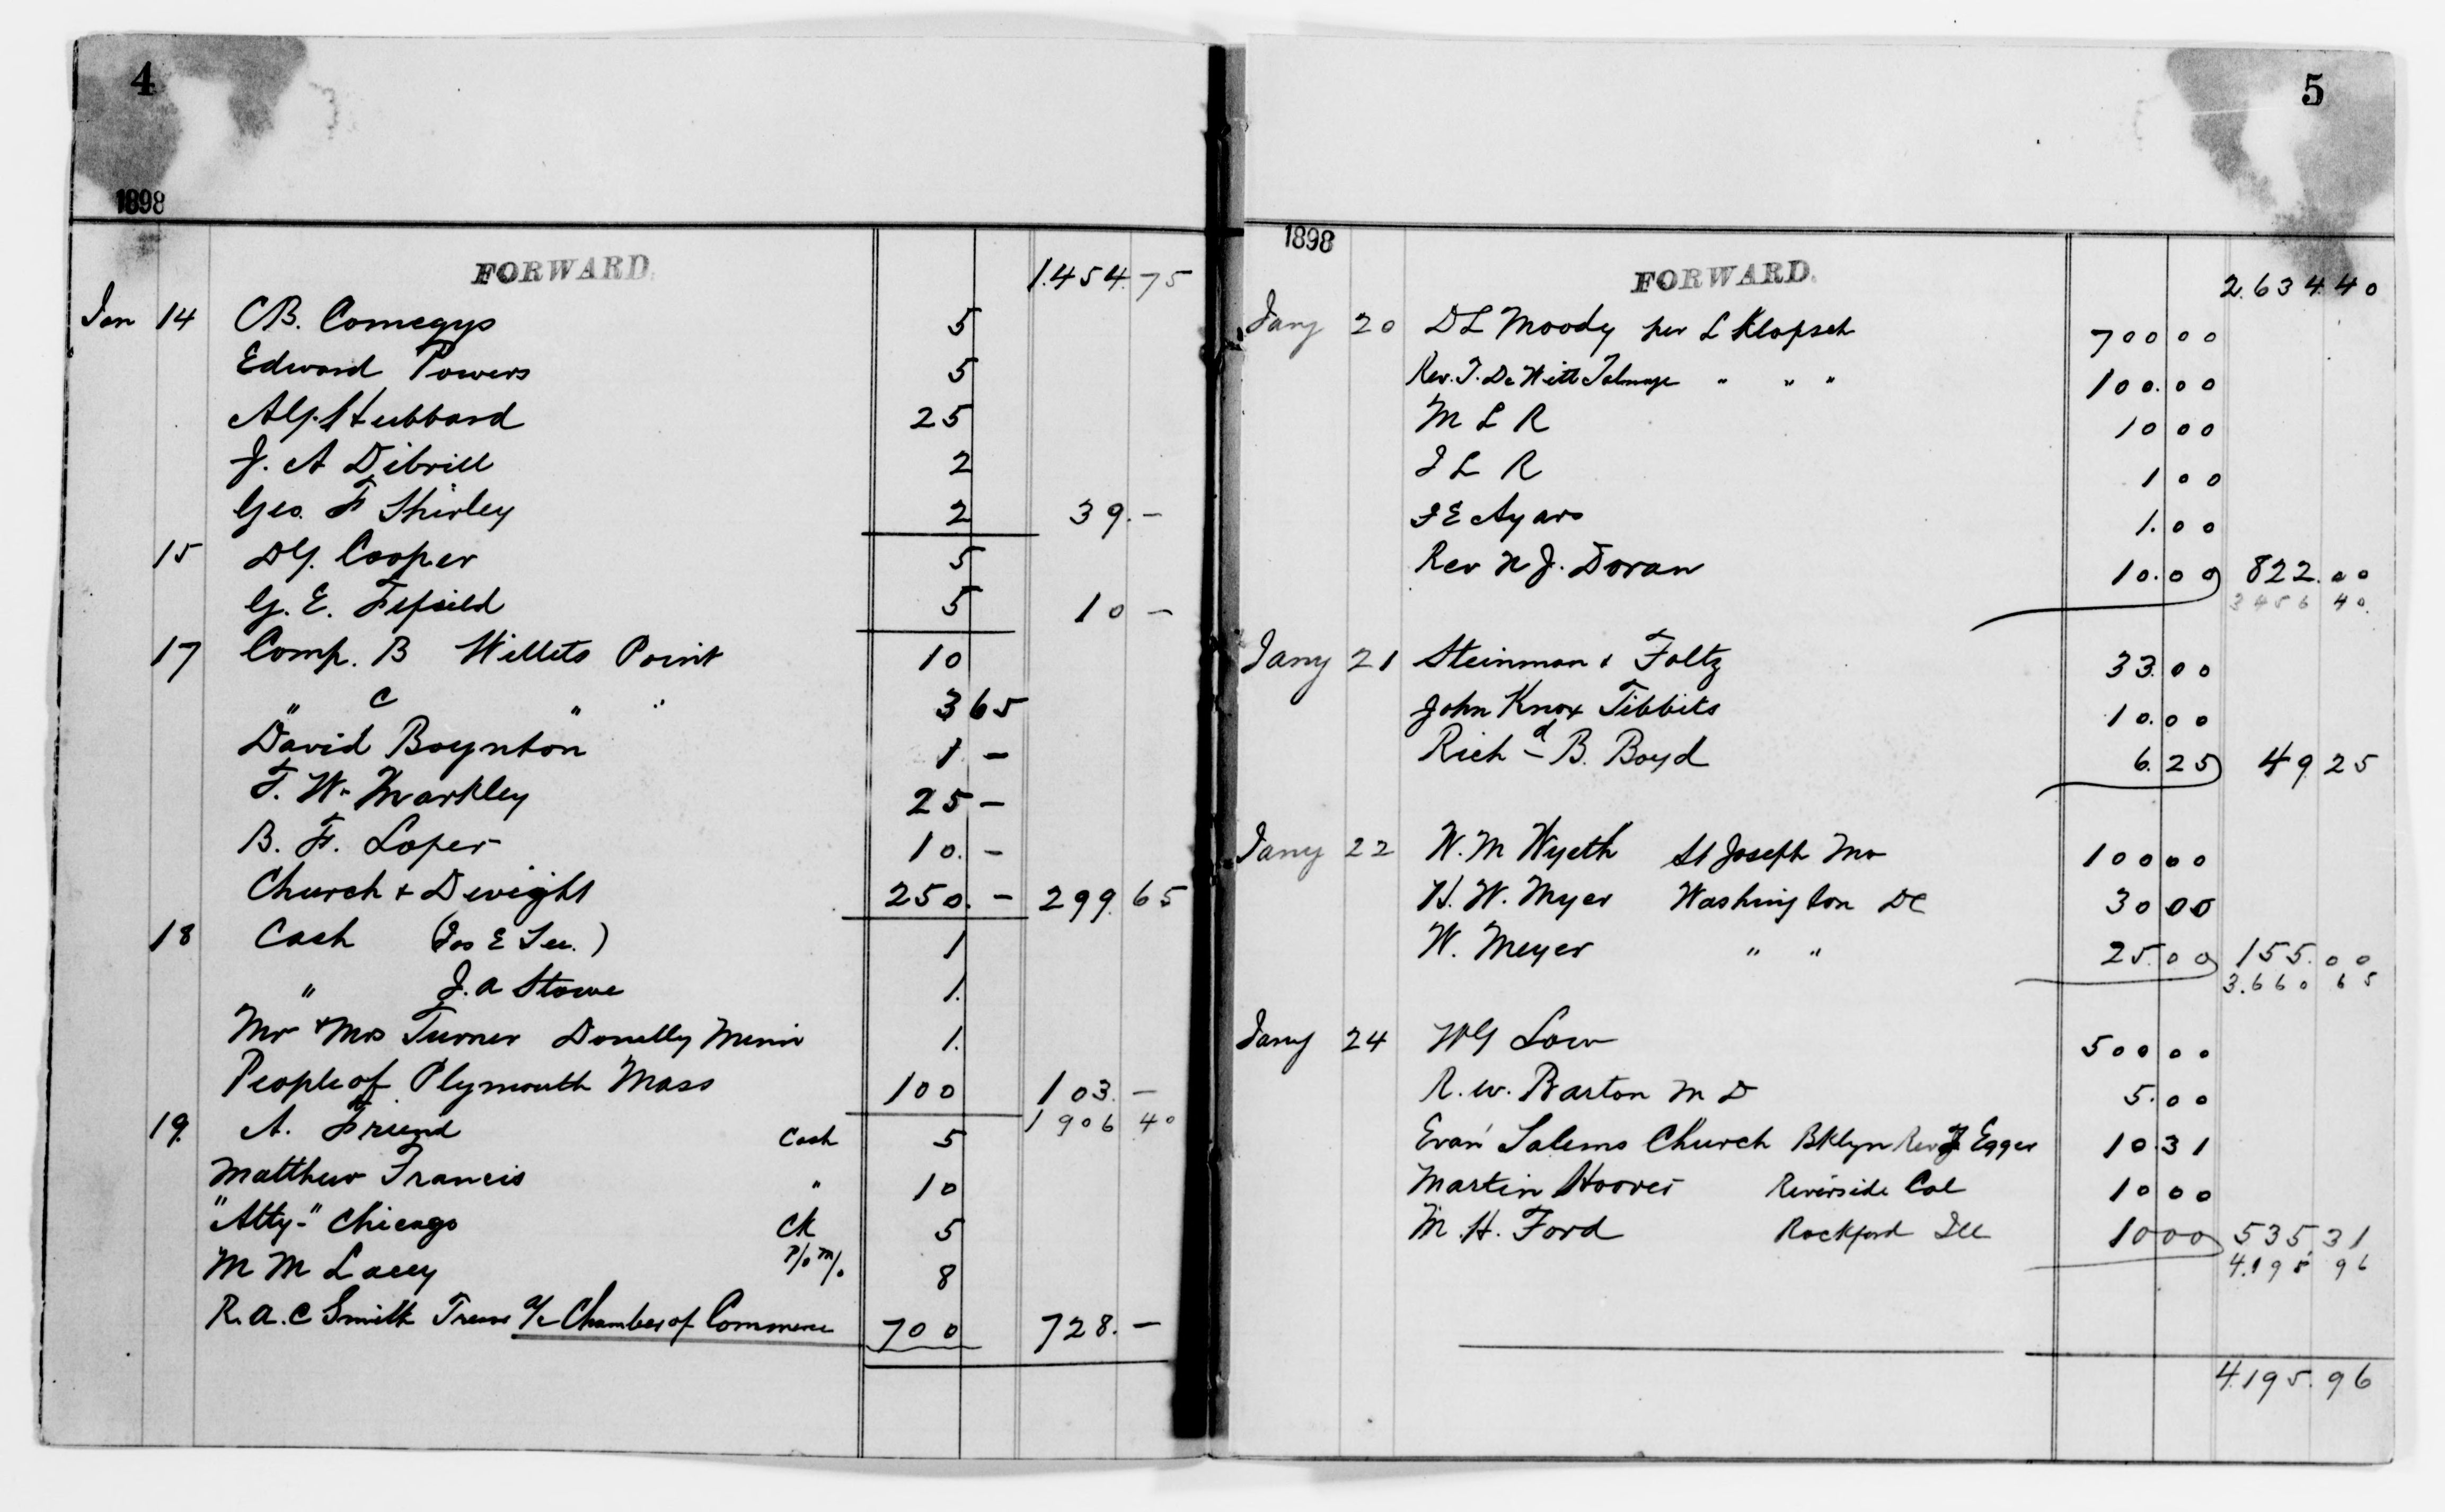 4
1898
FORWARD. 1.454.75
Jan 14 C B. Comegys 5
Edward Powers 5
A G. Hubbard 25
J. A Dibrill 2
Geo. F Shirley 2 39.-
15 D G. Cooper 5
G. E. Fifield 5 10 -
17 Comp. B Willets Point 10
" C " " 3 65
David Boynton 1 -
F. W. Markley 25 -
B. F. Loper 10. -
Church & Dwight 250. - 299.65
18 Cash (Jos E ) 1
" J. A Stowe 1.
Mr & Mrs Turner Donelly Minn 1.
People of Plymouth Mass 100 103. -
1906 40
19. A. Friend Cash 5
Matthew Francis " 10
"Atty-" Chicago Ck 5
M M Lacey P/o M/o 8
R. A. C Smith Treas a/c Chamber of Commerce 700 728. -
5
1898
FORWARD. 2.634.40
Jany 20 D L Moody per L Klopsch 700 00
Rev. T. De Witt Talmage " " " 100.00
M L R 10 00
J L R 1 00
J E Ayars 1.00
Rev N J. Doran 10.00 822.00
3456 40.
Jany 21 Steinman & Foltz 33.00
John Knox Tibbits 10.00
Richd B. Boyd 6.25 49 25
Jany 22 W. M Wyeth St Joseph Mo 100 00
H. W. Myer Washington DC 30 00
W. Meyer " " 25.00 155.00
3.660 65
Jany 24 W G Low 500 00
R. W. Barton M D 5.00
Evan Salems Church Bklyn Rev J Egger 10.31
Martin Hoover Riverside Cal 10 00
M. H. Ford Rockford Ill 10 00 535.31
4.195 96
4.195.96